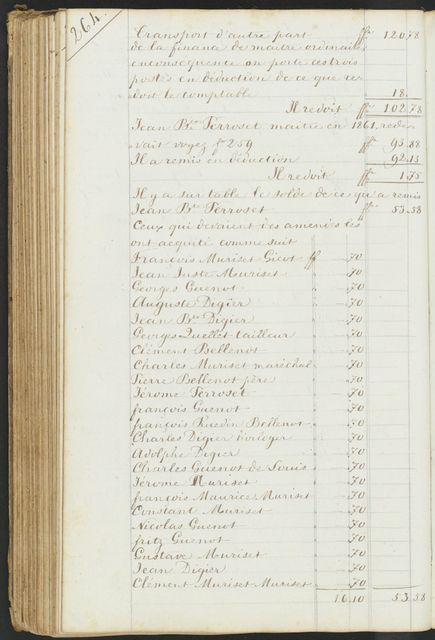 264.
Transport d'autre part ff 120.78
de la finance de maitre ordinaire
enconséquence on porte ces trois
postes en déduction de ce que re-
doit le comptable 18."
Il redoit ff 102.78
Jean Bte Ferroset maitre en 1861 rede-
vait voyez f° 259 ff 93.88
Il a remis en déduction 92.13
Il redoit ff 1.75
Il y a sur table le solde de ce qu'a remis
Jean Bte Ferroset ff 53.58
Ceux qui devaient des amendes les
ont acquité comme suit
François Muriset Gicot ff " .70
Jean Juste Muriset " .70
Georges Guenot " .70
Auguste Digier " .70
Jean Bte Digier " .70
Georges Quellet tailleur " .70
Clément Bellenot " .70
Charles Muriset maréchal " .70
Pierre Bellenot père " .70
Jérome Ferroset " .70
françois Guenot " .70
françois Ruedin Bellenot " .70
Charles Digier horloger " .70
Adolphe Digier " .70
Charles Guenot de Louis " .70
Jérome Muriset " .70
françois Maurice Muriset " .70
Constant Muriset " .70
Nicolas Guenot " .70
fritz Guenot " .70
Gustave Muriset " .70
Jean Digier " .70
Clément Muriset Muriset " .70
16.10 53.58